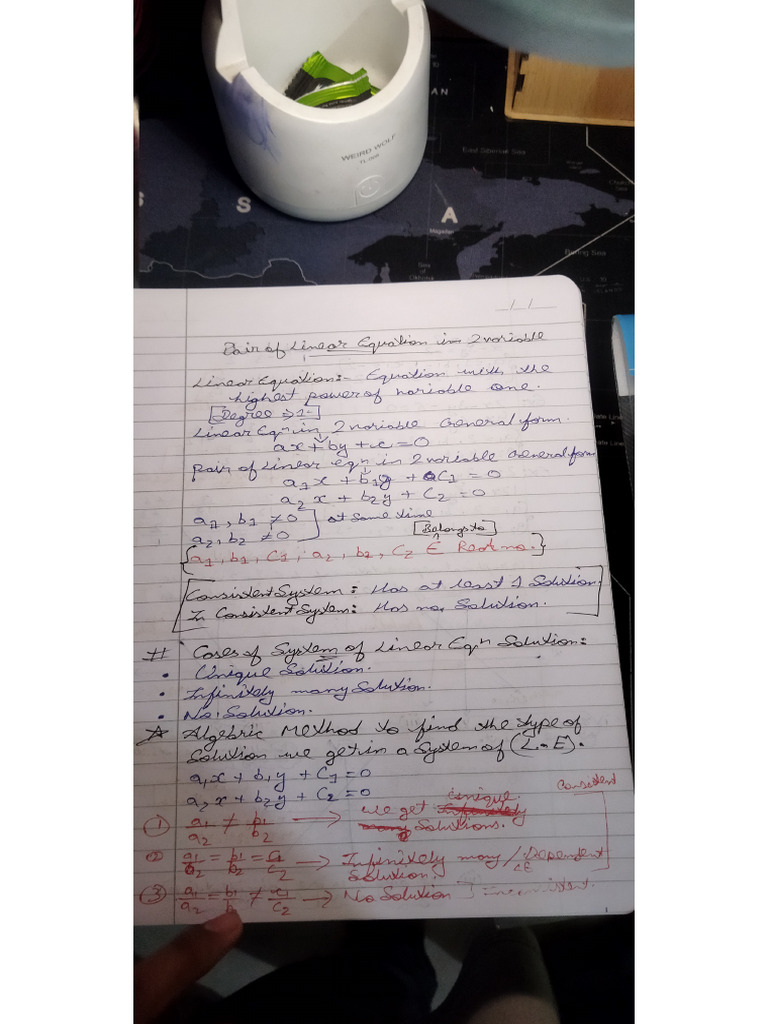 AN
East Siberian Sea
WEIRD WOLF
S
S
A
Bering Sea
Sea of Okhotsk
__/__/__
Pair of Linear Equation in 2 variable
Linear Equation:- Equation with the
highest power of variable one.
Degree ⇒ 1-
Linear Eqⁿ in 2 variable General form.
ax + by + c = 0
Pair of Linear eqⁿ in 2 variable General form
a₁x + b₁y + C₁ = 0
a₂x + b₂y + C₂ = 0
a₁, b₁ ≠ 0
a₂, b₂ ≠ 0
at same time
Belongs to
{a₁, b₁, C₁, a₂, b₂, C₂ ∈ Real no.}
Consistent System: Has at least 1 Solution.
In Consistent System: Has no Solution.
# Cases of System of Linear Eqⁿ Solution:
• Unique Solution.
• Infinitely many Solution.
• No Solution.
☆ Algebric Method to find the type of
Solution we get in a System of (L.E).
a₁x + b₁y + C₁ = 0
a₂x + b₂y + C₂ = 0
① a₁/a₂ ≠ b₁/b₂ → we get Unique Solutions.
② a₁/a₂ = b₁/b₂ = c₁/c₂ → Infinitely many / Dependent
Solution. LE
Consistent
③ a₁/a₂ = b₁/b ≠ c₁/c₂ → No Solution ] Inconsistent.